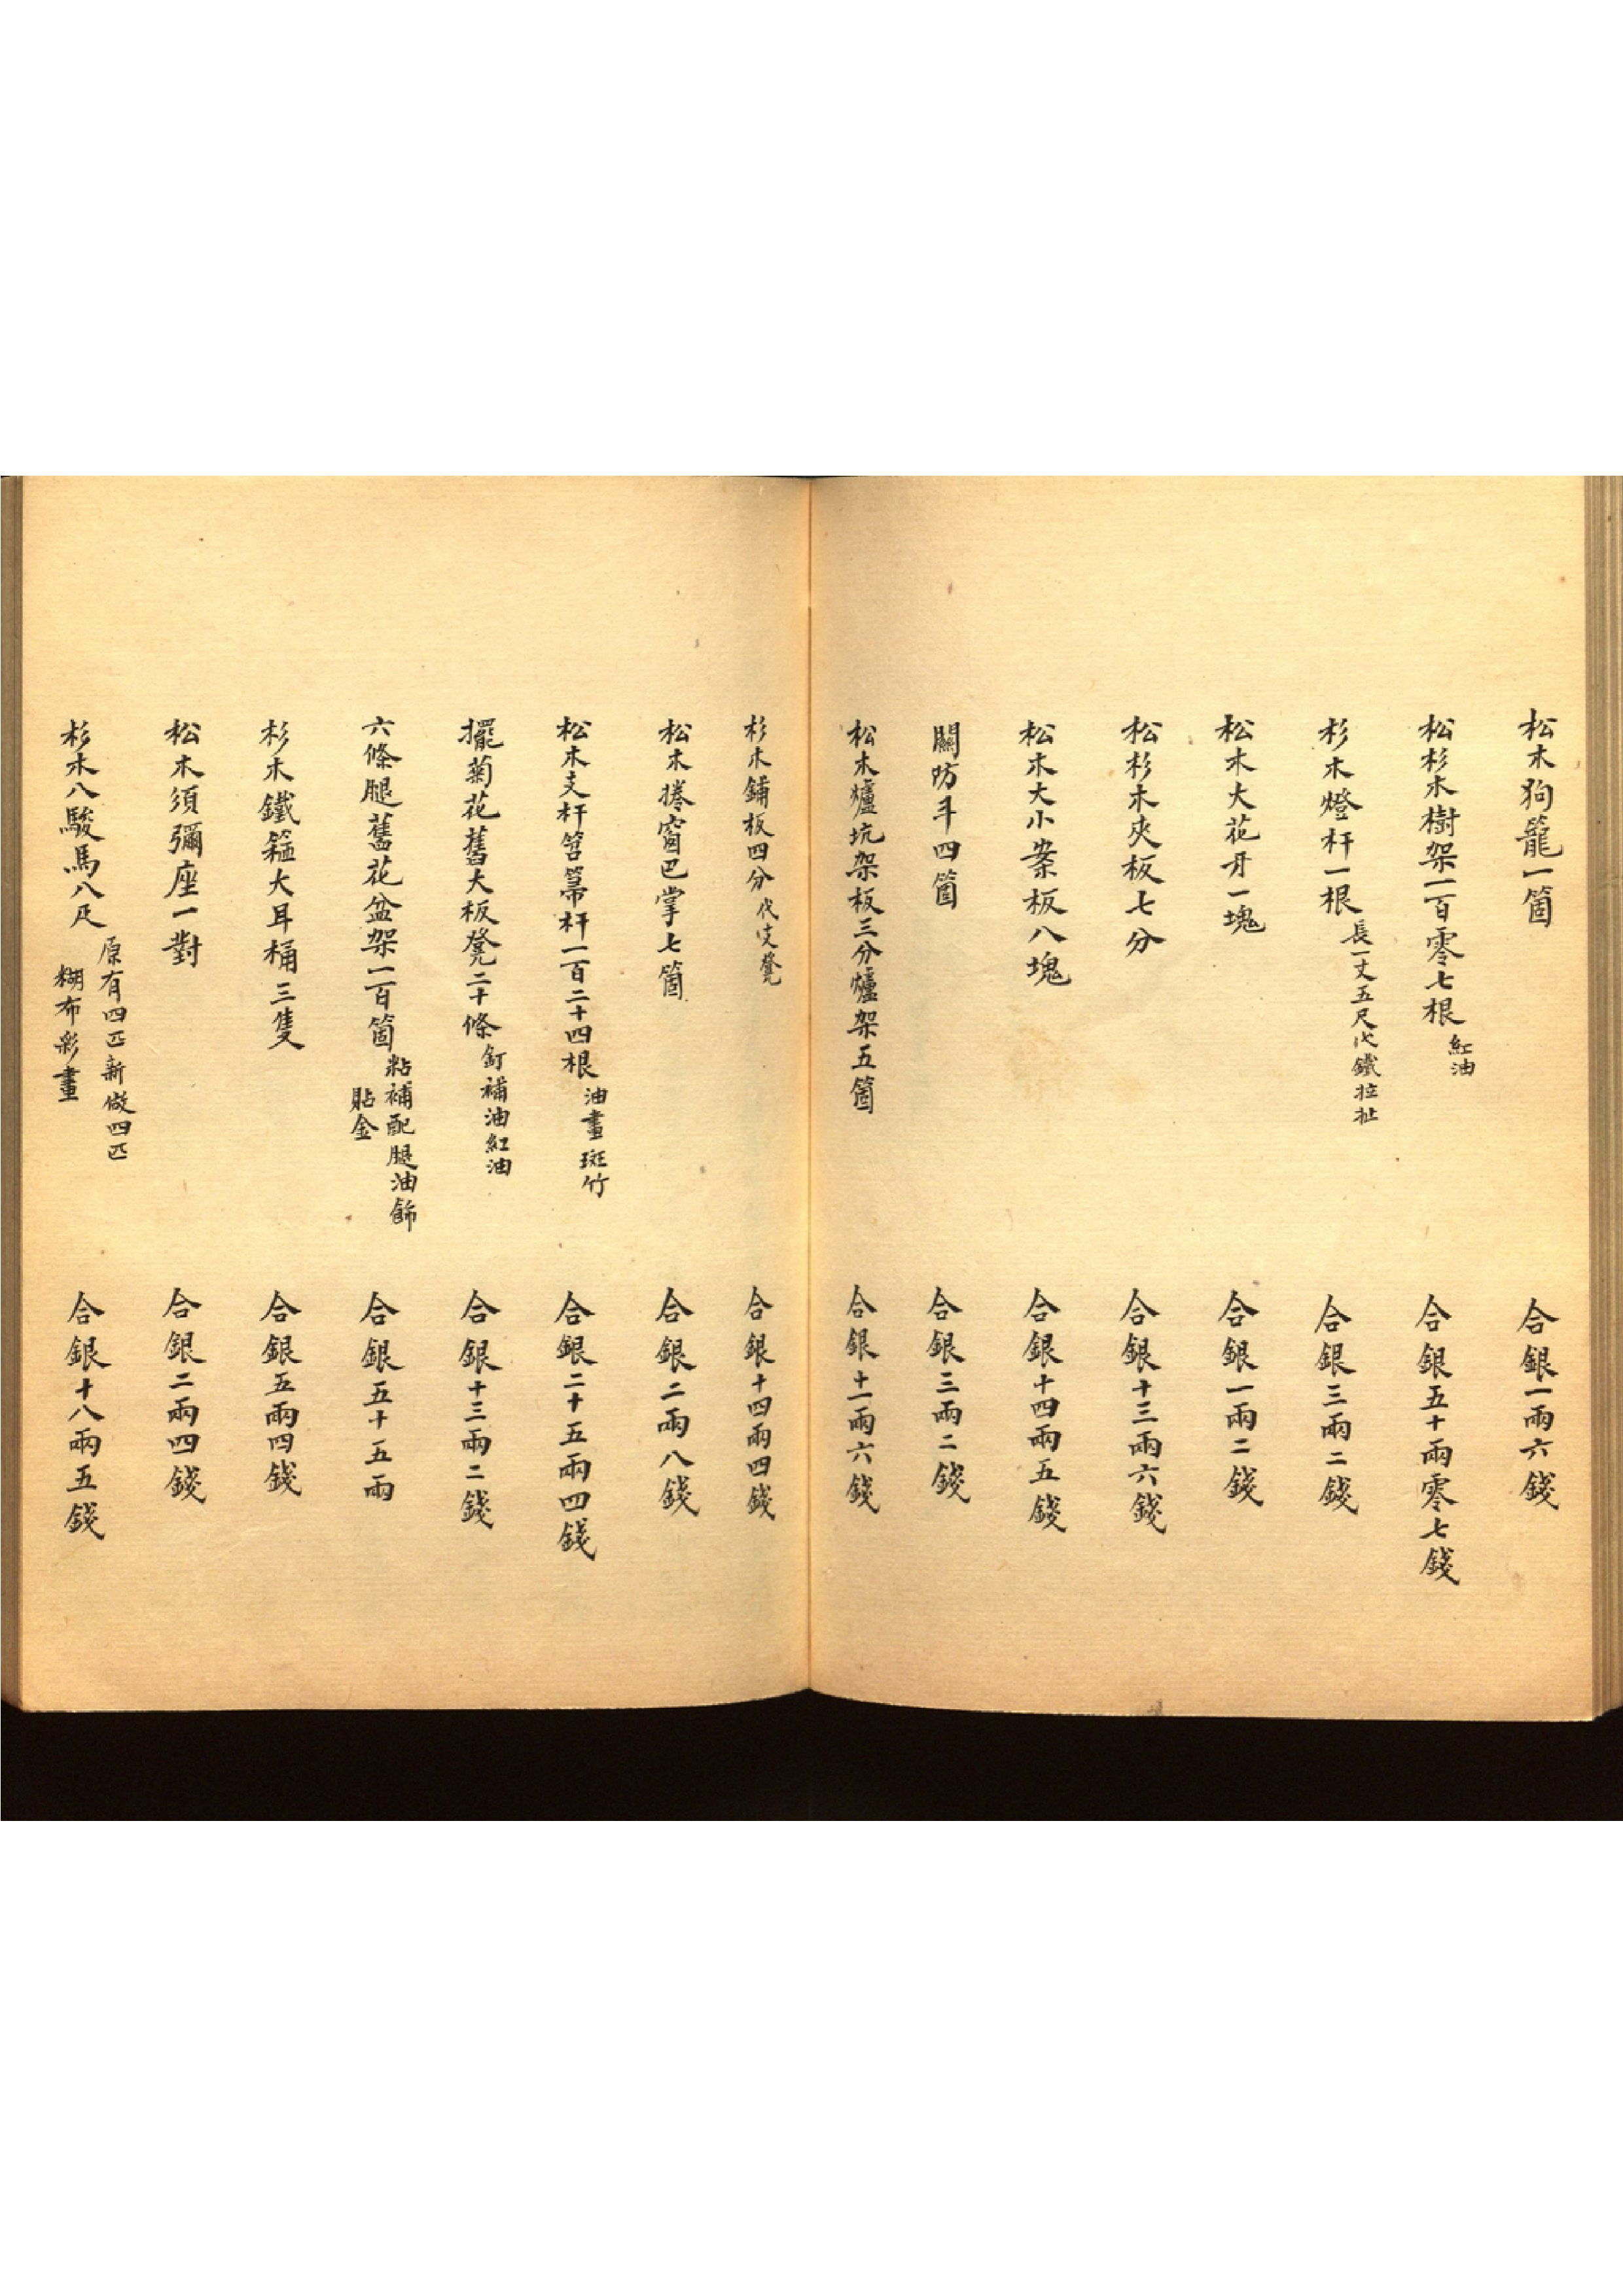 松木狗籠一箇 合銀一兩六錢
松杉木樹架一百零七根 紅油 合銀五十兩零七錢
杉木燈杆一根 長一丈五尺代鐵拉扯 合銀三兩二錢
松木大花牙一塊 合銀一兩二錢
松杉木夾板七分 合銀十三兩六錢
松木大小案板八塊 合銀十四兩五錢
關防斗四箇 合銀三兩二錢
松木爐坑架板三分爐架五箇 合銀十一兩六錢
杉木鋪板四分 代支凳 合銀十四兩四錢
松木捲窗巴掌七箇 合銀二兩八錢
松木支杆笤箒杆一百二十四根 油畫斑竹 合銀二十五兩四錢
擺菊花舊大板凳二十條 釘補油紅油 合銀十三兩二錢
六條腿舊花盆架一百箇 粘補配腿油飾
貼金 合銀五十五兩
杉木鐵箍大耳桶三隻 合銀五兩四錢
松木須彌座一對 合銀二兩四錢
杉木八駿馬八疋 原有四匹新做四匹
糊布彩畫 合銀十八兩五錢